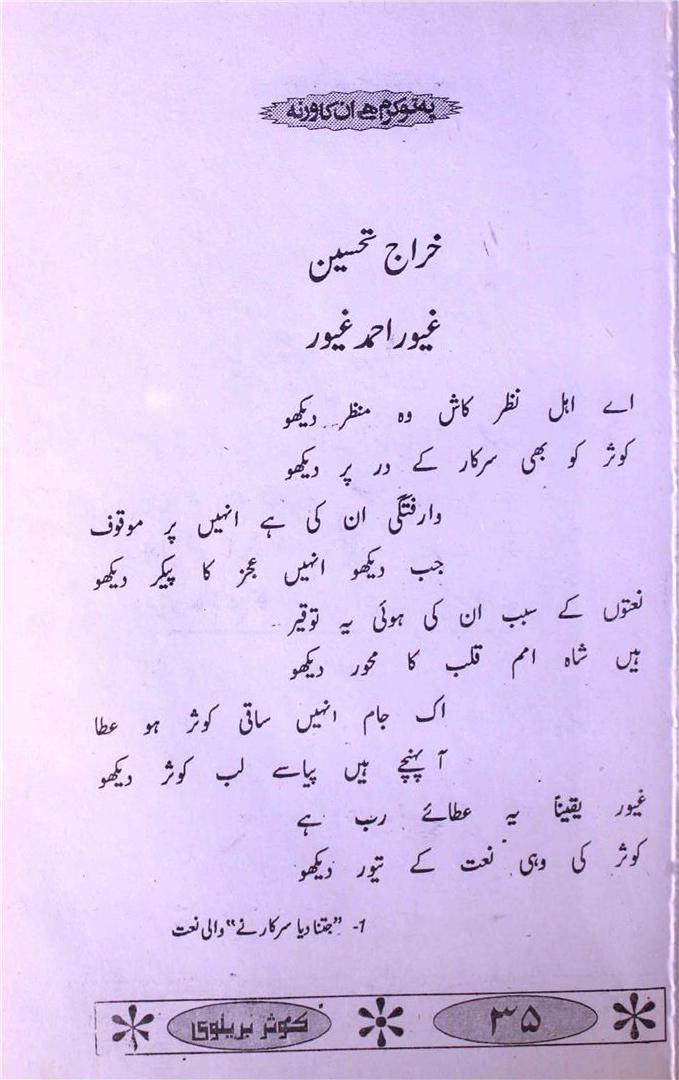 یہ تو کرم ھے ان کا ورنہ
خراج تحسین
غیور احمد غیور
اے اہل نظر کاش وہ منظر دیکھو
کوثر کو بھی سرکار کے در پر دیکھو
وارفتگی ان کی ہے انہیں پر موقوف
جب دیکھو انہیں عجز کا پیکر دیکھو
نعتوں کے سبب ان کی ہوئی یہ توقیر
ہیں شاہ امم قلب کا محور دیکھو
اک جام انہیں ساقی کوثر ہو عطا
آ پہنچے ہیں پیاسے لب کوثر دیکھو
غیور یقیناً یہ عطائے رب ہے
کوثر کی وہی نعت کے تیور دیکھو
1- "جتنا دیا سرکار نے" والی نعت
۳۵
کوثر بریلوی